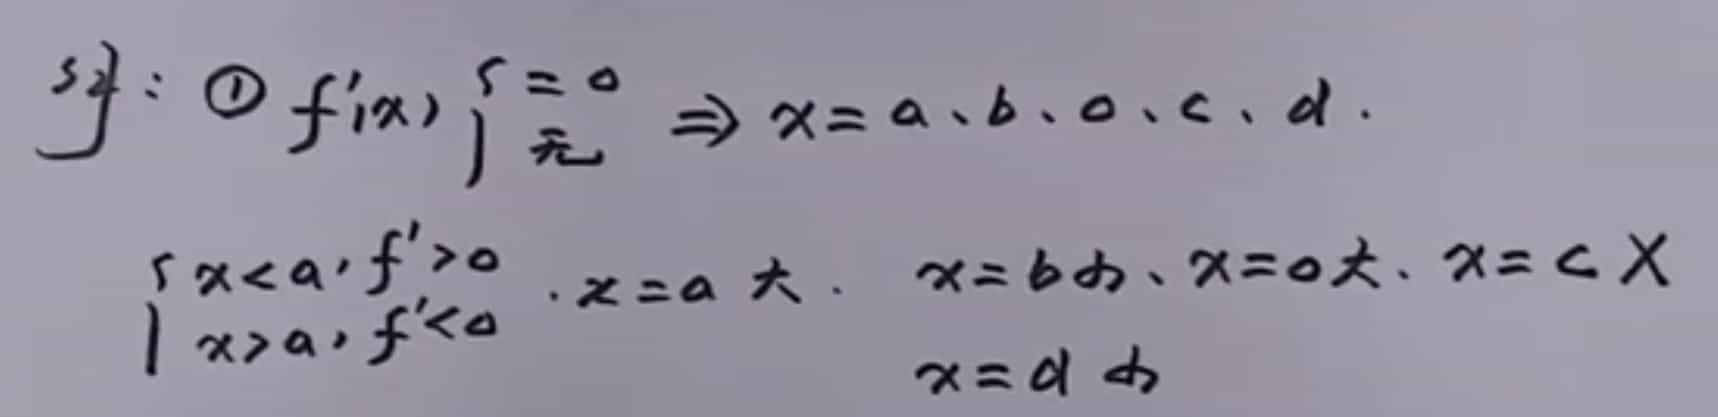 解: ① f'(x) { = 0 无 ⇒ x = a、b、0、c、d.
{ x < a, f' > 0 x > a, f' < 0 . x = a 大. x = b 小、x = 0 大. x = c X
x = d 小